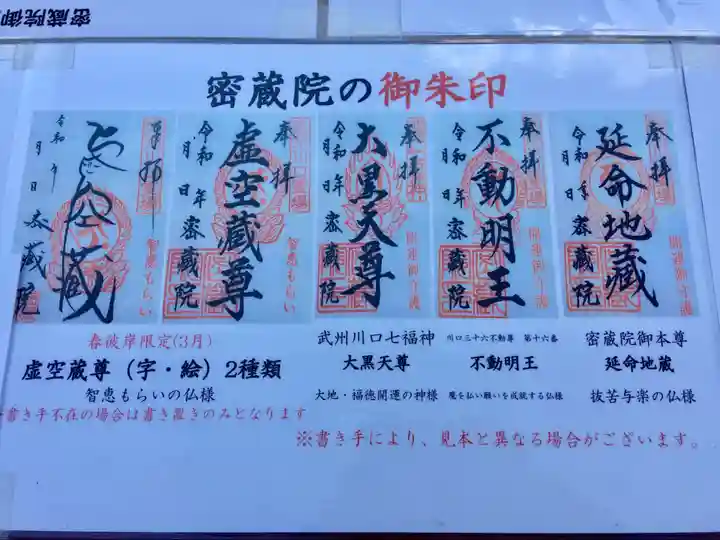 密蔵院の御朱印
奉拝
延命地蔵
令和 年
月 日 密蔵院
開運御守護
奉拝
不動明王
令和 年
月 日 密蔵院
開運御守護
奉拝
大黒天尊
令和 年
月 日 密蔵院
開運御守護
奉拝
虚空蔵尊
令和 年
月 日 密蔵院
智恵もらい
奉拝
虚空蔵
令和 年
月 日 密蔵院
智恵もらい
春彼岸限定(3月)
虚空蔵尊（字・絵）2種類
智恵もらいの仏様
書き手不在の場合は書き置きのみとなります
武州川口七福神
大黒天尊
大地・福徳開運の神様
川口三十六不動尊 第十六番
不動明王
魔を払い願いを成就する仏様
密蔵院御本尊
延命地蔵
抜苦与楽の仏様
※書き手により、見本と異なる場合がございます。
密蔵院御